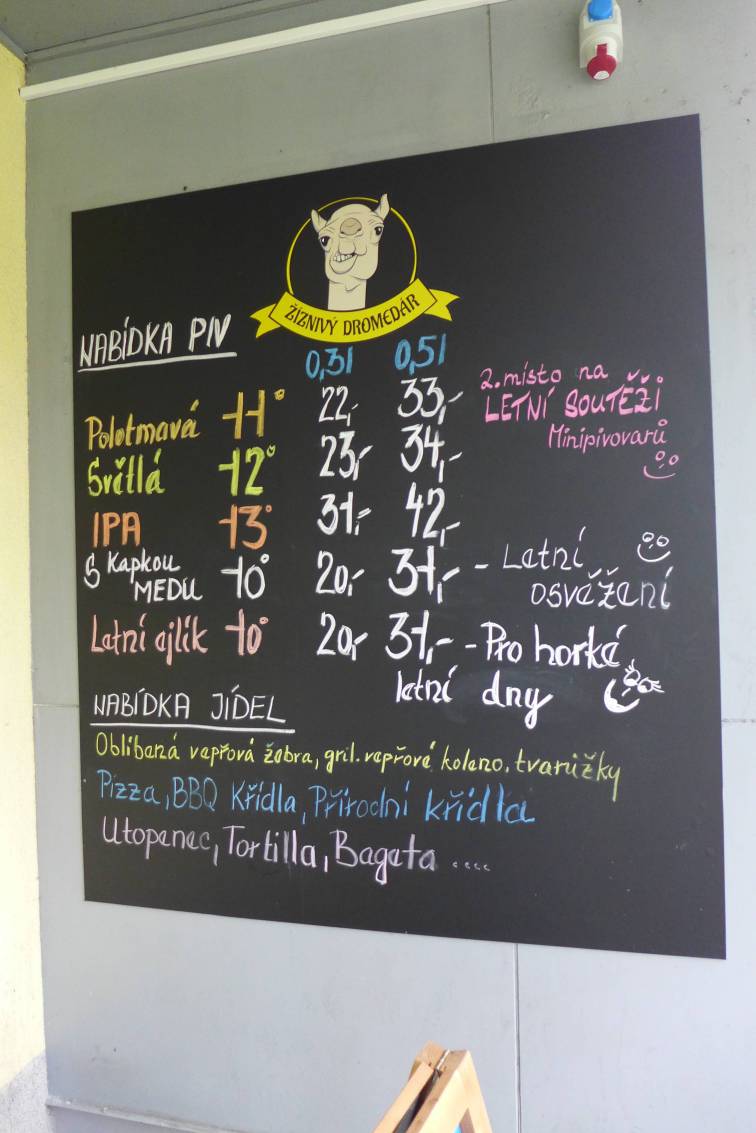 ŽÍZNIVÝ DROMEDÁR
NABÍDKA PIV
0,3l 0,5l
Polotmavá 11° 22,- 33,-
2. místo na
LETNÍ SOUTĚŽI
Minipivovarů
Světlá 12° 23,- 34,-
IPA 13° 31,- 42,-
S Kapkou
MEDU 10° 20,- 31,- - Letní
osvěžení
Letní ajlík 10° 20,- 31,- - Pro horké
letní dny
NABÍDKA JÍDEL
Oblíbená vepřová žebra, gril. vepřové koleno, tvarůžky
Pizza, BBQ Křídla, Přírodní křídla
Utopenec, Tortilla, Bageta ....